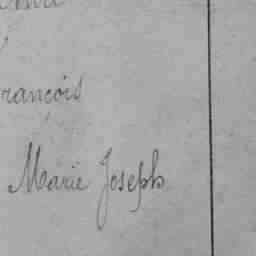 rançois
Marie Joseph